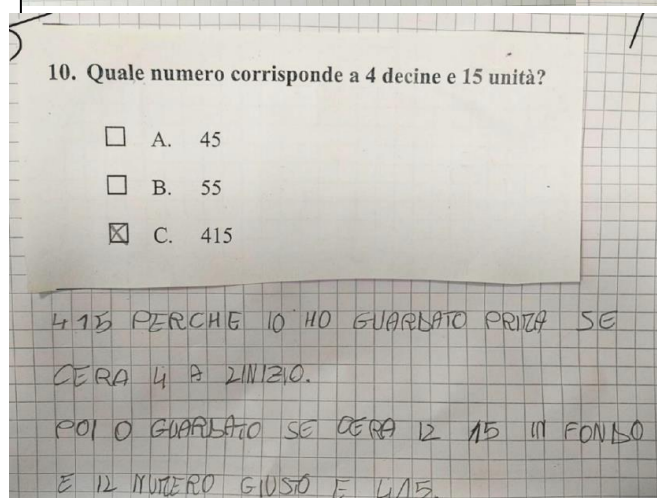 10. Quale numero corrisponde a 4 decine e 15 unità?
A. 45
B. 55
C. 415
415 PERCHE IO HO GUARDATO PRIMA SE
CERA 4 A LINIZIO.
POI O GUARDATO SE CERA IL 15 IN FONDO
E IL NUMERO GIUSTO E 415.